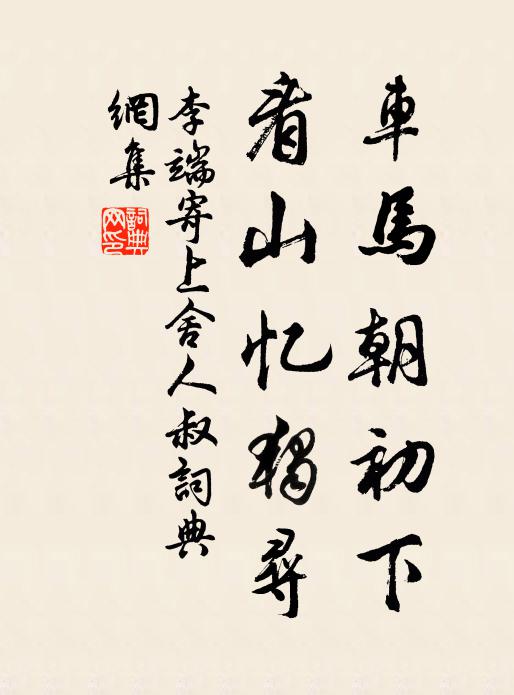 車馬朝初下
看山忆獨尋
李端寄上舍人叔詞典
網集
詞典
网印